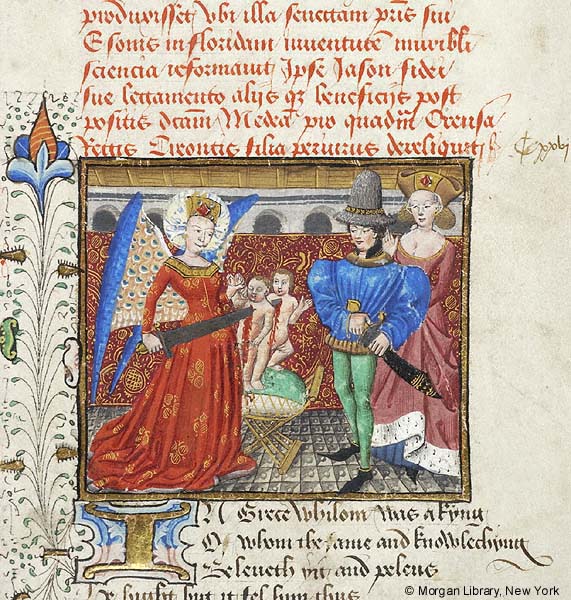 produxisset vbi illa senectam pris sui
Esonis in floridam iuuentutē mirabili
sciencia reformauit Ipse Iason fidei
sue legamento alijs qz beneficijs post
positis dcam Medeā pro quadm Creusa
Regis Creontis filia periurus dereliquit
IN Grece whilom was a kyng
Of whom the fame and knowlechyng
Beleueth yit and peleus
He hight but it fel him thus
© Morgan Library, New York